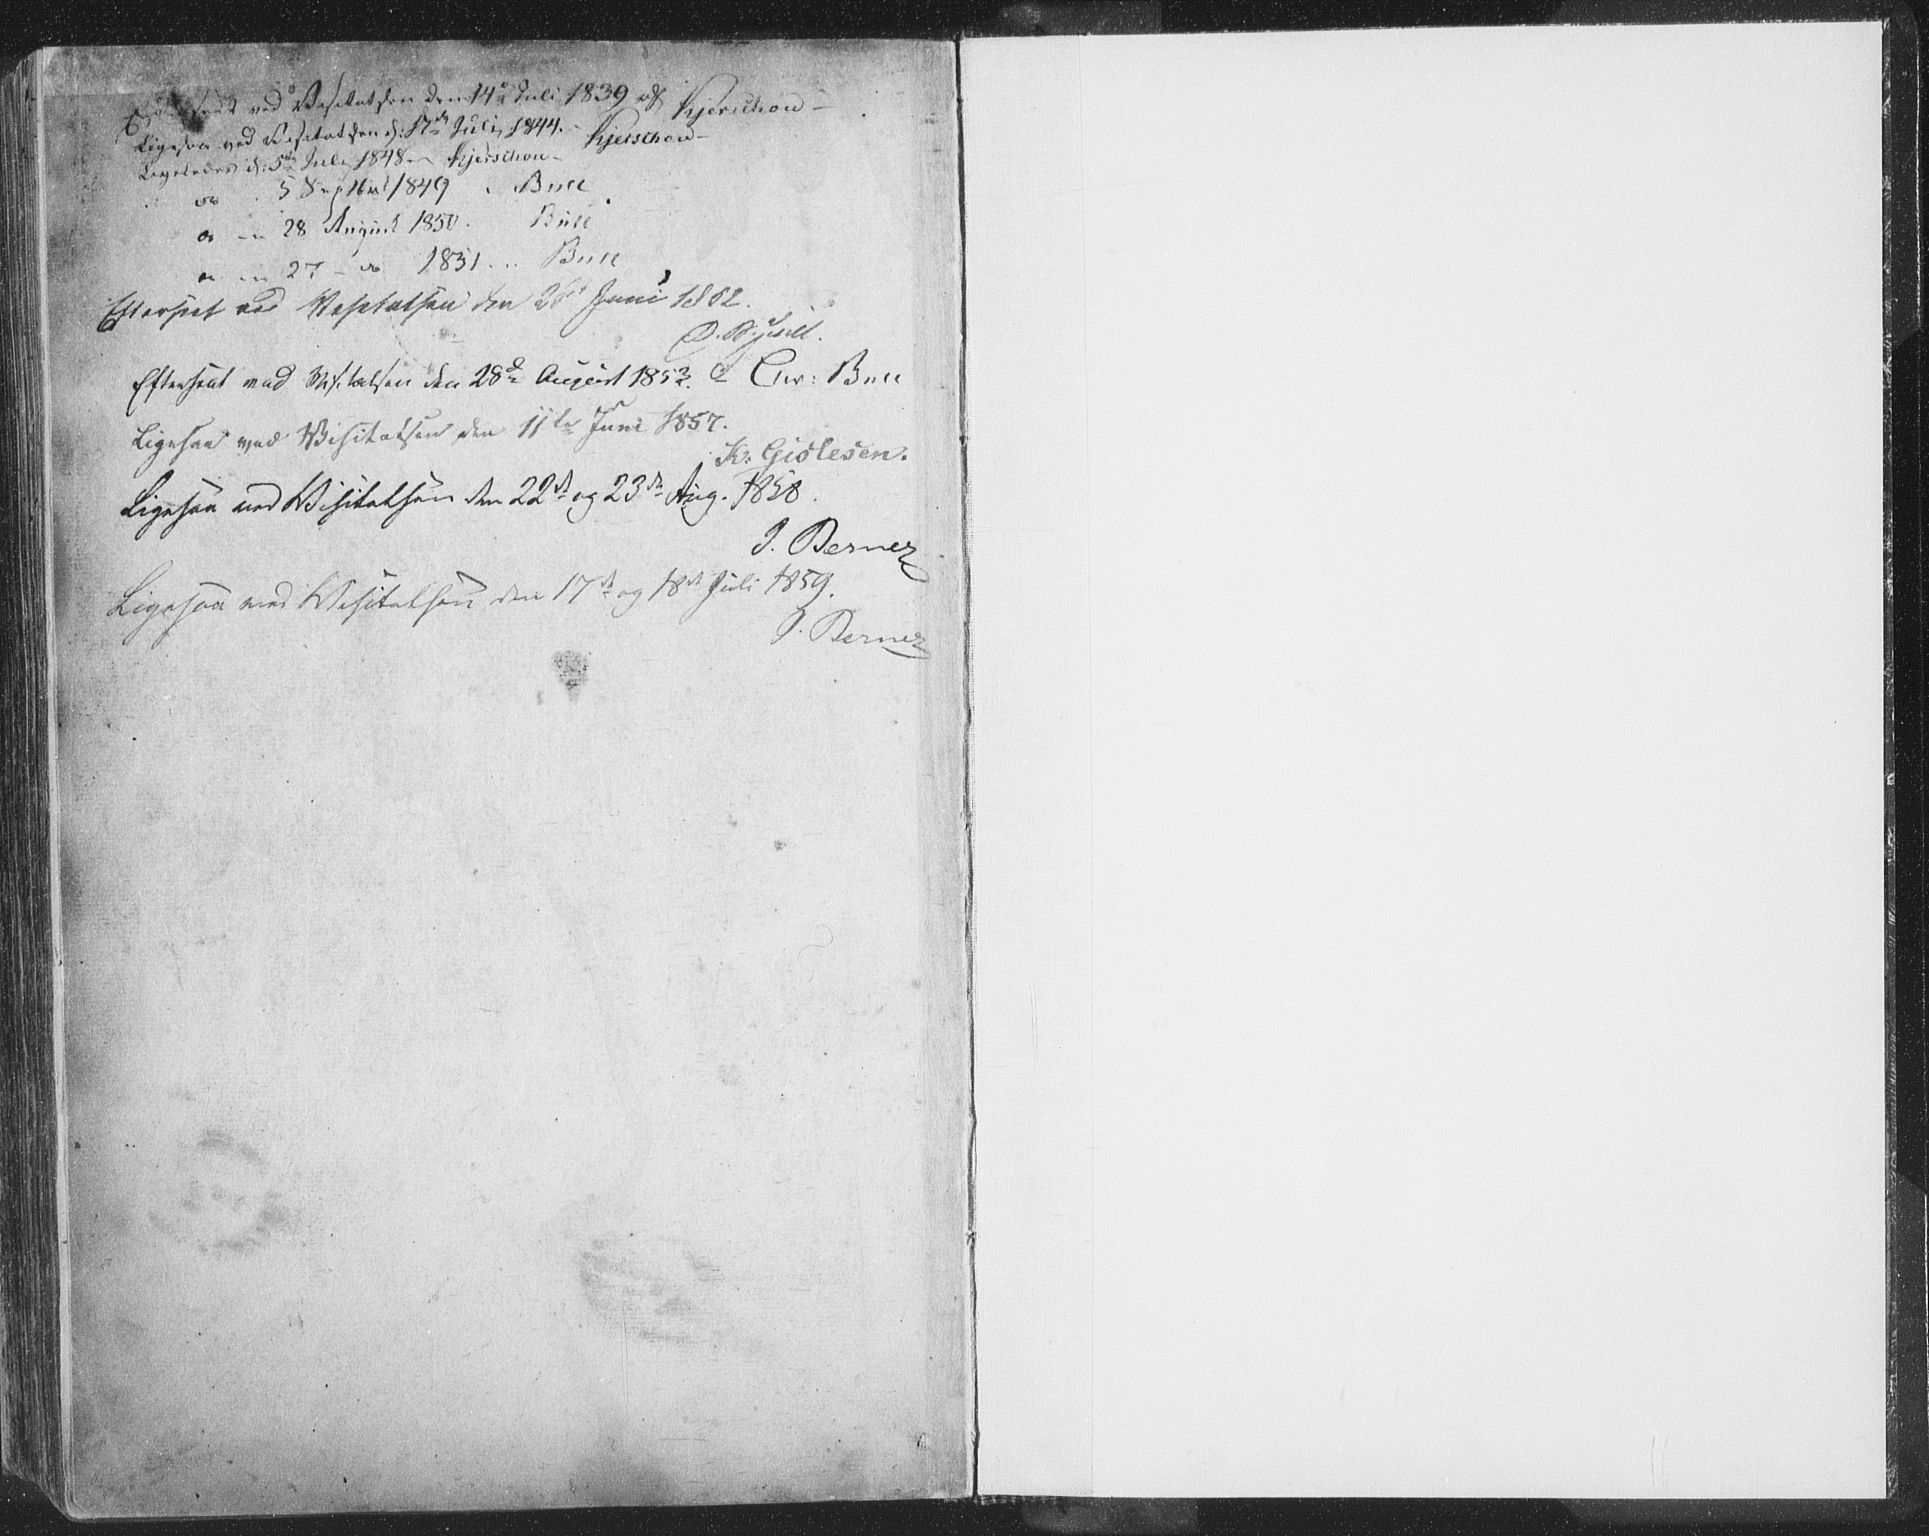 Efterseet ved Visitatsen den 14de Juli 1839 af Kjerschow
Ligesaa ved Visitatsen d: 17de Juli 1844. Kjerschow
Ligeledes d: 5te Juli 1848 Kjerschow
do 5 Septbr 1849 Bull
do 28 August 1850. Bull
do 27 - do 1851. Bull
Efterseet ved Visitatsen den Juni 1852.
Efterseet ved Visitatsen den 28de August 1853. Chr: Bull
Ligesaa ved Visitatsen den 11te Juni 1857.
K. Gislesen.
Ligesaa ved Visitatsen den 22de og 23de Aug. 1858.
J. Berner
Ligesaa ved Visitatsen den 17de og 18de Juli 1859.
J. Berner